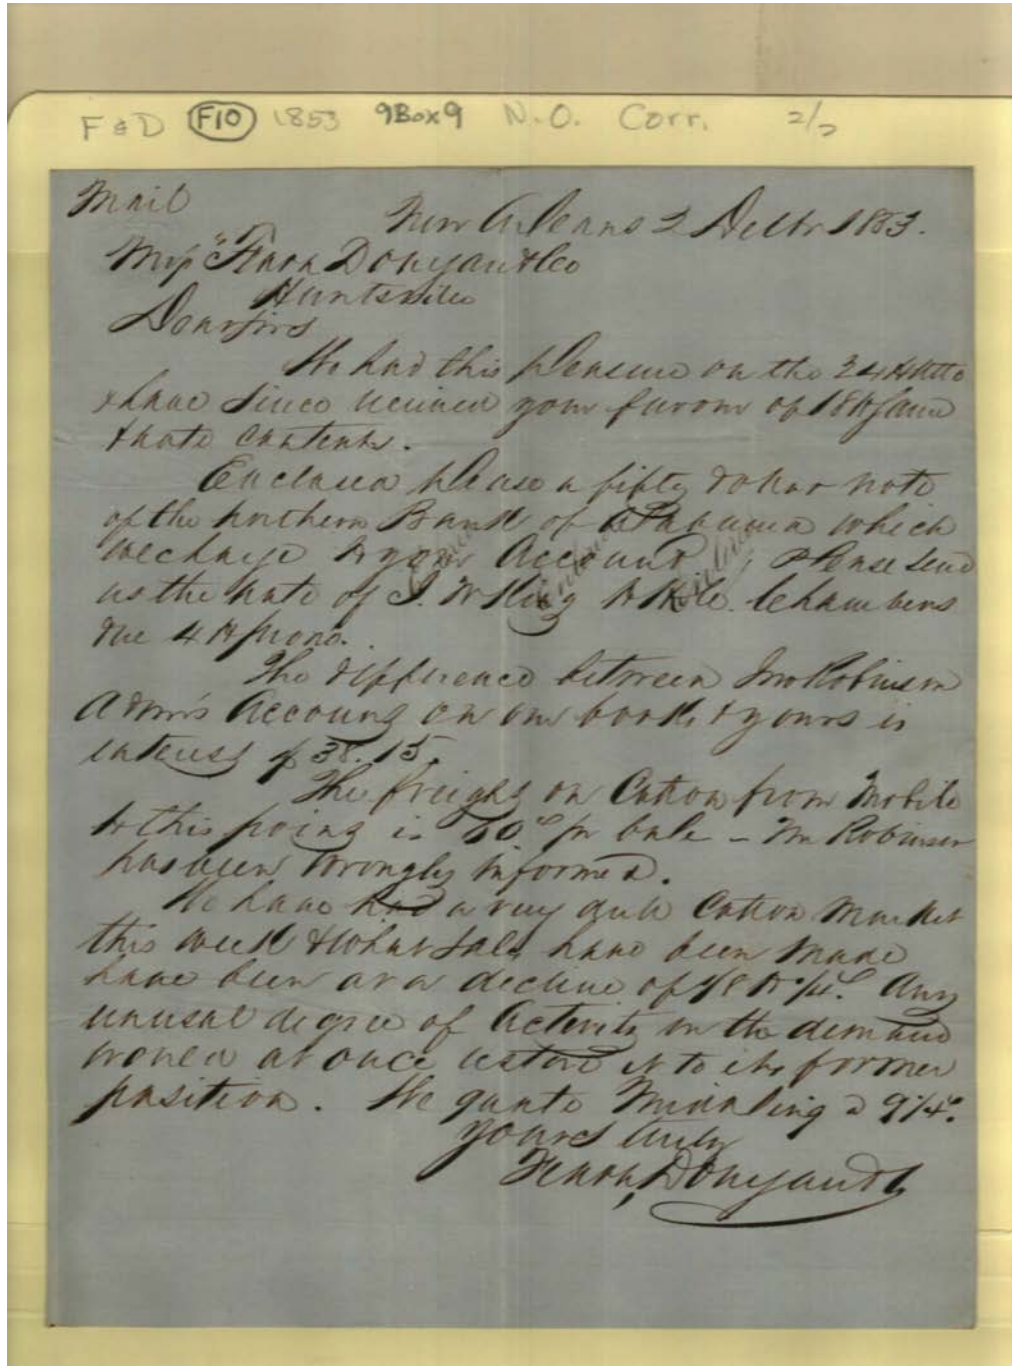 F & D F10 1853 9Box9 N.O. Corr. 2/2
Mail
New Orleans 2 Decbr 1853.
Fearn Donegan & Co
Huntsville
Dear Sirs
We had this pleasure on the 24th Ulto
& have since received your favour of 18th Same
& note contents.
Enclosed please a fifty dollar note
of the Northern Bank of Alabama which
we charge to your Account; please send
us the note of J. W King Chambers
due 4th
The difference between Jno Robinson
Admr's Account on our books & yours is
interest of 38.15.
The freight on Cotton from Mobile
to this point is 60c pr bale – Mr Robinson
has been wrongly informed.
We have had a very dull Cotton Market
this week & what Sales have been made
have been at a decline of 1/8 to 1/4c. Any
unusal degree of Activity in the demand
would at once restore it to its former
position. We quote Middling a 9 1/4c.
yours truly
Fearn, Donegan & Co